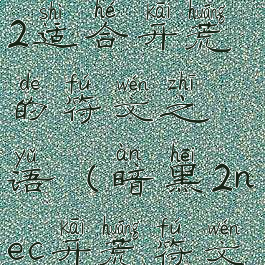 shì hé kāi huāng
2适合开荒
de fú wén zhī
的符文之
yǔ àn hēi
语（暗黑2n
kāi huāng fú wén
ec开荒符文